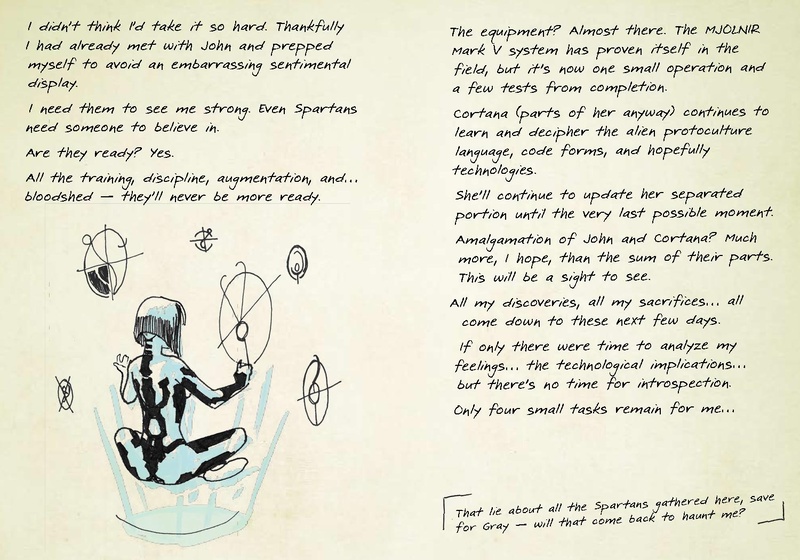 I didn't think I'd take it so hard. Thankfully
I had already met with John and prepped
myself to avoid an embarrassing sentimental
display.
I need them to see me strong. Even Spartans
need someone to believe in.
Are they ready? Yes.
All the training, discipline, augmentation, and...
bloodshed — they'll never be more ready.
The equipment? Almost there. The MJOLNIR
Mark V system has proven itself in the
field, but it's now one small operation and
a few tests from completion.
Cortana (parts of her anyway) continues to
learn and decipher the alien protoculture
language, code forms, and hopefully
technologies.
She'll continue to update her separated
portion until the very last possible moment.
Amalgamation of John and Cortana? Much
more, I hope, than the sum of their parts.
This will be a sight to see.
All my discoveries, all my sacrifices... all
come down to these next few days.
If only there were time to analyze my
feelings... the technological implications...
but there's no time for introspection.
Only four small tasks remain for me...
That lie about all the Spartans gathered here, save
for Gray — will that come back to haunt me?